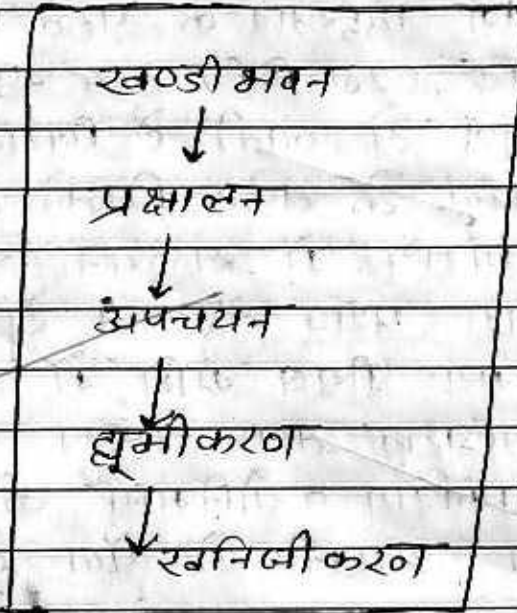 खण्डीभवन
↓
प्रक्षालन
↓
अपचयन
↓
ह्यूमीकरण
↓
खनिजीकरण